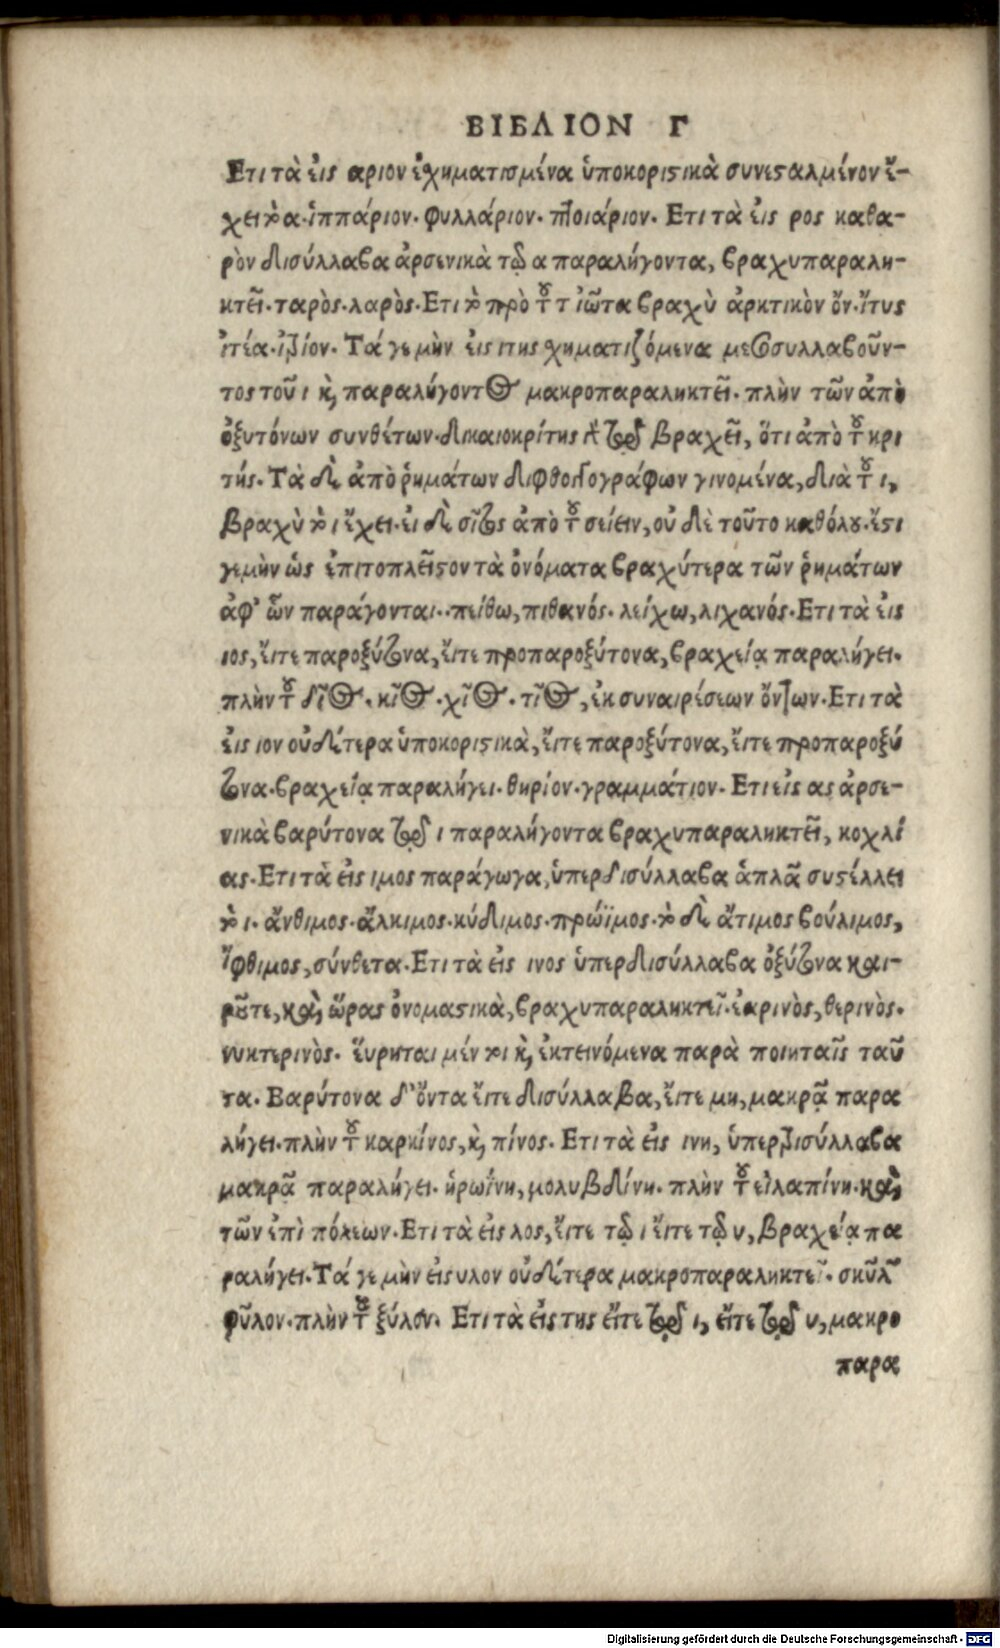 ΒΙΒΛΙΟΝ Γ
Ετι τὰ εἰς αριον ἐσχηματισμένα ὑποκοριστικὰ συνεσταλμένον ἔ-
χει τὸ α. ἱππάριον. φυλλάριον. πλοιάριον. Ετι τὰ εἰς ρος καθα-
ρὸν δισύλλαβα ἀρσενικὰ τῷ α παραλήγοντα, βραχυπαραλη-
κτεῖ. ταρὸς. λαρὸς. Ετι τὸ πρὸ τοῦ τ ἰῶτα βραχὺ ἀρκτικὸν ὄν. ἴτυς
ἰτέα. ἰβίον. Τά γε μὴν εἰς ιτης σχηματιζόμενα μετὰ συλλαβοῦν-
τος τοῦ ι καὶ παραλήγοντος μακροπαραληκτεῖ. πλὴν τῶν ἀπὸ
ὀξυτόνων συνθέτων. δικαιοκρίτης παρὰ βραχεῖ, ὅτι ἀπὸ τοῦ κρι
τής. Τὰ δὲ ἀπὸ ῥημάτων διφθογγογράφων γινομένα, διὰ τοῦ ι,
βραχὺ τὸ ι ἔχει. εἰ δὲ σῖτος ἀπὸ τοῦ σείειν, οὐ δὲ τοῦτο καθόλου. ἔστι
γε μὴν ὡς ἐπιτοπλεῖστον τὰ ὀνόματα βραχύτερα τῶν ῥημάτων
ἀφ’ ὧν παράγονται. πείθω, πιθανός. λείχω, λιχανός. Ετι τὰ εἰς
ιος, εἴτε παροξύτονα, εἴτε προπαροξύτονα, βραχείᾳ παραλήγει.
πλὴν τοῦ δῖος. κῖος. χῖος. τῖος, ἐκ συναιρέσεων ὄντων. Ετι τὰ
εἰς ιον οὐδέτερα ὑποκοριστικὰ, εἴτε παροξύτονα, εἴτε προπαροξύ
τονα. βραχείᾳ παραλήγει. θηρίον. γραμμάτιον. Ετι εἰς ας ἀρσε-
νικὰ βαρύτονα τῷ ι παραλήγοντα βραχυπαραληκτεῖ, κοχλί
ας. Ετι τὰ εἰς ιμος παράγωγα, ὑπερδισύλλαβα ἁπλᾶ συστέλλει
τὸ ι. ἄνθιμος. ἄλκιμος. κύδιμος. πρώϊμος. τὸ δὲ ἄτιμος βούλιμος,
ἴφθιμος, σύνθετα. Ετι τὰ εἰς ινος ὑπερδισύλλαβα ὀξύτονα και-
ροῦτε, καὶ ὥρας ὀνομαστικὰ, βραχυπαραληκτεῖ. ἐαρινὸς, θερινὸς.
νυκτερινὸς. ἕυρηται μέν τοι καὶ ἐκτεινόμενα παρὰ ποιηταῖς ταῦ
τα. Βαρύτονα δ’ ὄντα εἴτε δισύλλαβα, εἴτε μη, μακρᾷ παρα
λήγει. πλὴν τοῦ καρκίνος, καὶ πίνος. Ετι τὰ εἰς ινη, ὑπερδισύλλαβα
μακρᾷ παραλήγει. ἡρωΐνη, μολυβδίνη. πλὴν τοῦ εἰλαπίνη. καὶ
τῶν ἐπὶ πόλεων. Ετι τὰ εἰς λος, εἴτε τῷ ι εἴτε τῷ υ, βραχείᾳ πα
ραλήγει. Τά γε μὴν εἰς υλον οὐδέτερα μακροπαραληκτεῖ. σκῦλον
φῦλον. πλὴν τοῦ ξύλον. Ετι τὰ εἰς της εἴτε τῷ ι, εἴτε τῷ υ, μακρο
παρα
Digitalisierung gefördert durch die Deutsche Forschungsgemeinschaft - DFG